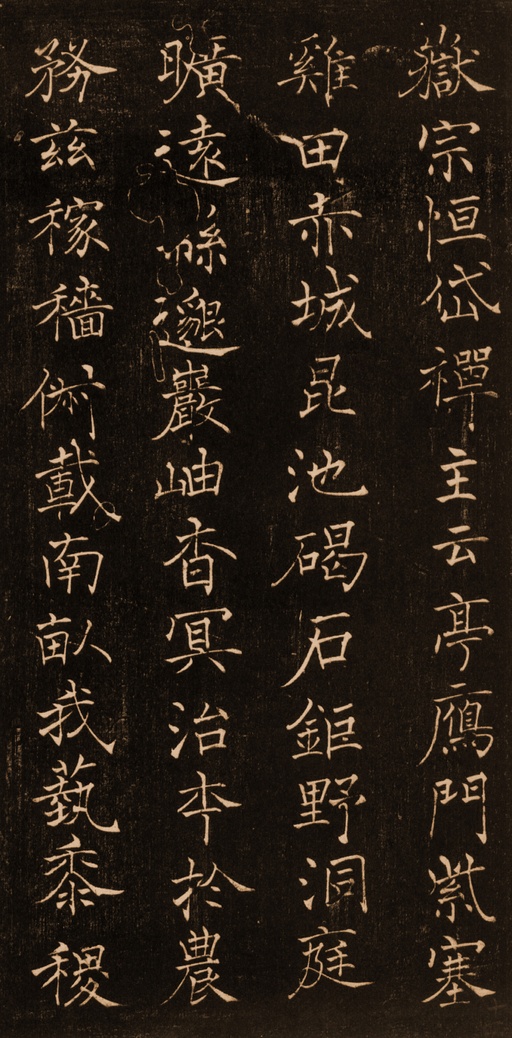 嶽宗恒岱禪主云亭鴈門紫塞
雞田赤城昆池碣石鉅野洞庭
曠遠緜邈巖岫杳冥治夲於農
務茲稼穡俶載南畝我藝黍稷